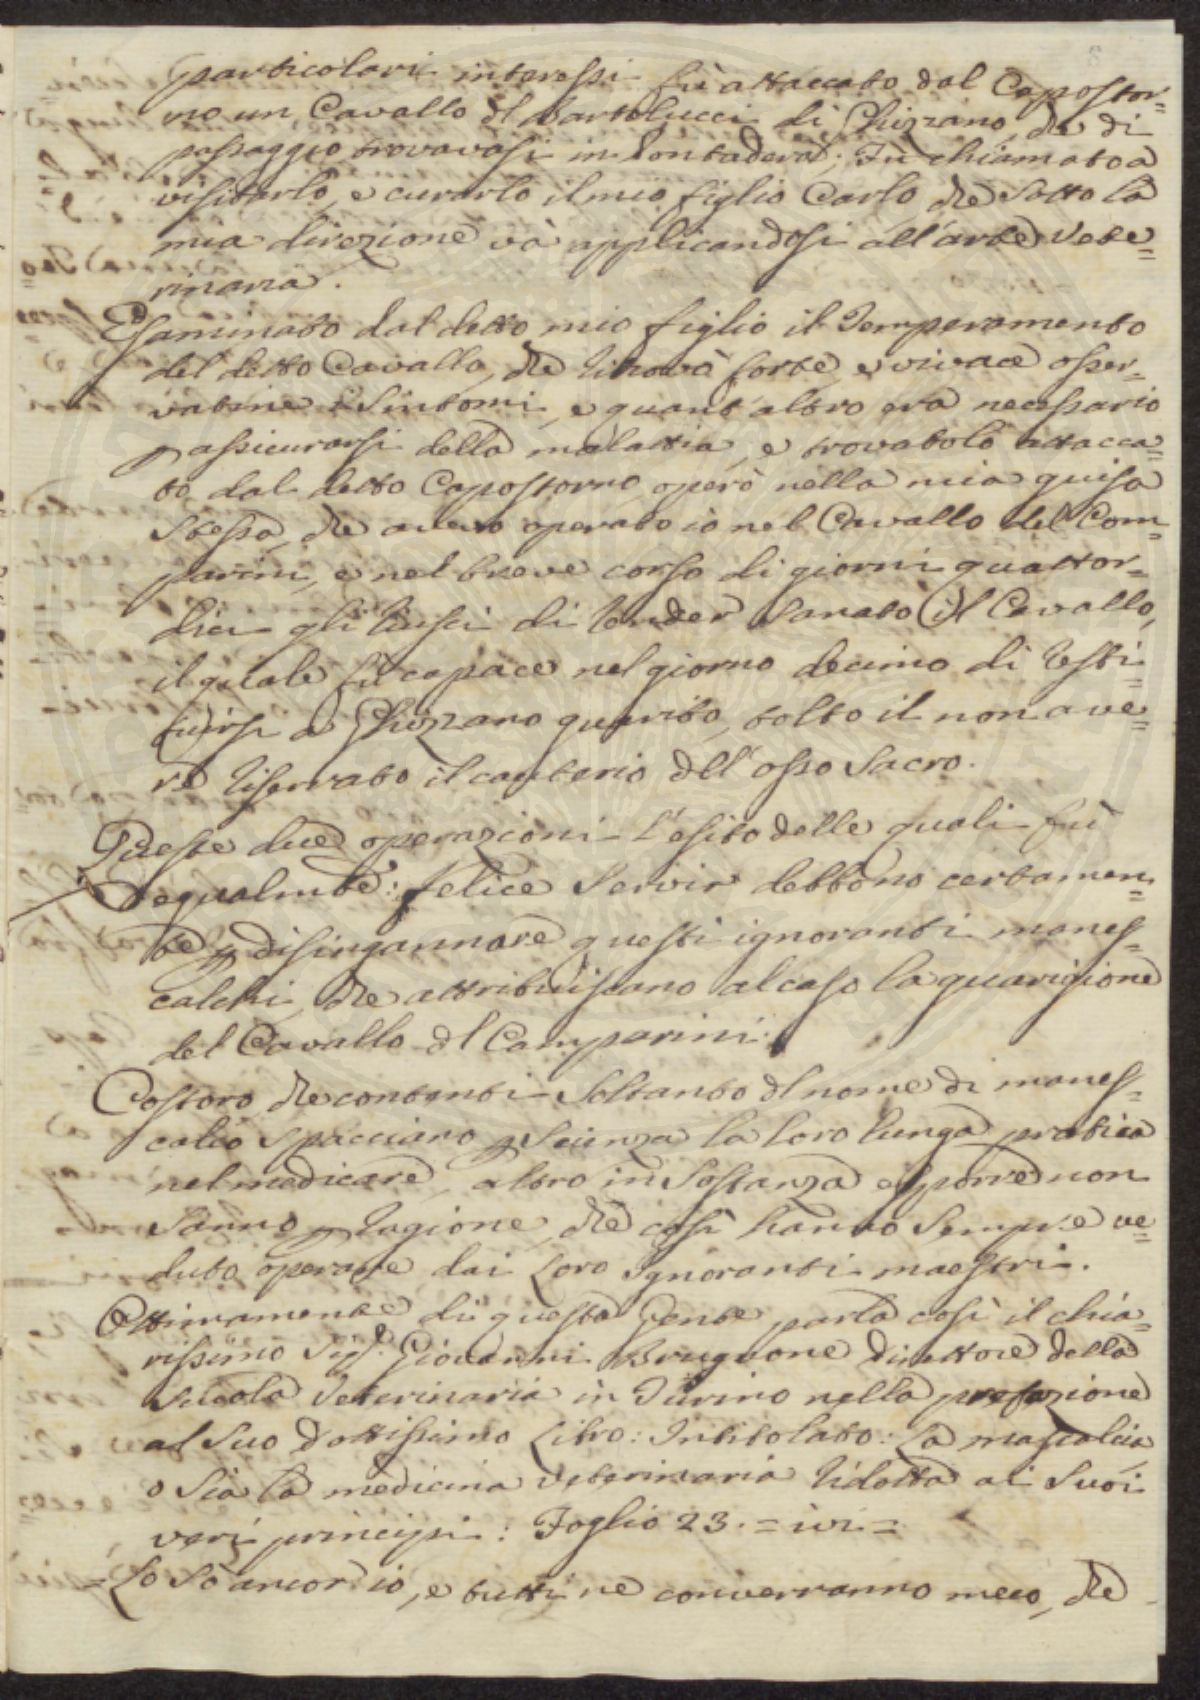 particolari interessi fù attaccato dal Capostor=
no un Cavallo dl Bartolucci di Ghizzano, che di
passaggio trovavasi in Pontadera; Fù chiamato a
visitarlo, e curarlo il mio figlio Carlo che sotto la
mia direzione và applicandosi all'arte Vete=
rinaria.
Esaminato dal detto mio figlio il Temperamento
del detto Cavallo, che trovò forte, e vivace osser=
vatine i Sintomi, e quant'altro era necessario
p assicurarsi della malattia, e trovatolo attacca=
to dal detto Capostorno, operò nella mia guisa
stessa, che avevo operato io nel Cavallo del Com=
parini, e nel breve corso di giorni quattor=
dici gli riuscì di render sanato il Cavallo,
il quale fù capace nel giorno decimo di resti=
tuirsi a Ghizzano guarito, tolto il non ave=
re riserrato il cauterio dell'osso Sacro.
Queste due operazioni l'esito delle quali fù
egualmte: felice servir debbono certamen=
te p disingannare questi ignoranti manes=
calchi, che attribuiscano al caso la guarigione
del Cavallo dl Camparini.
Costoro che contenti soltanto dl nome di manes=
calco spacciano p scienza la loro lunga pratica
nel medicare, altro in sostanza esporre non
sanno p ragione, che così hanno sempre ve=
duto operare dai loro ignoranti maestri.
Ottimamente di questa Gente parla così il chia=
rissimo Sigr. Giovanni Brugnone Direttore della
Scuola Veterinaria in Turino nella prefazione
al suo dottissimo Libro: Intitolato: La mascalcia
o sia la medicina veterinaria ridotta ai suoi
veri principi: Foglio 23. = ivi =
= Lo sò ancor io, e tutti ne converranno meco, che